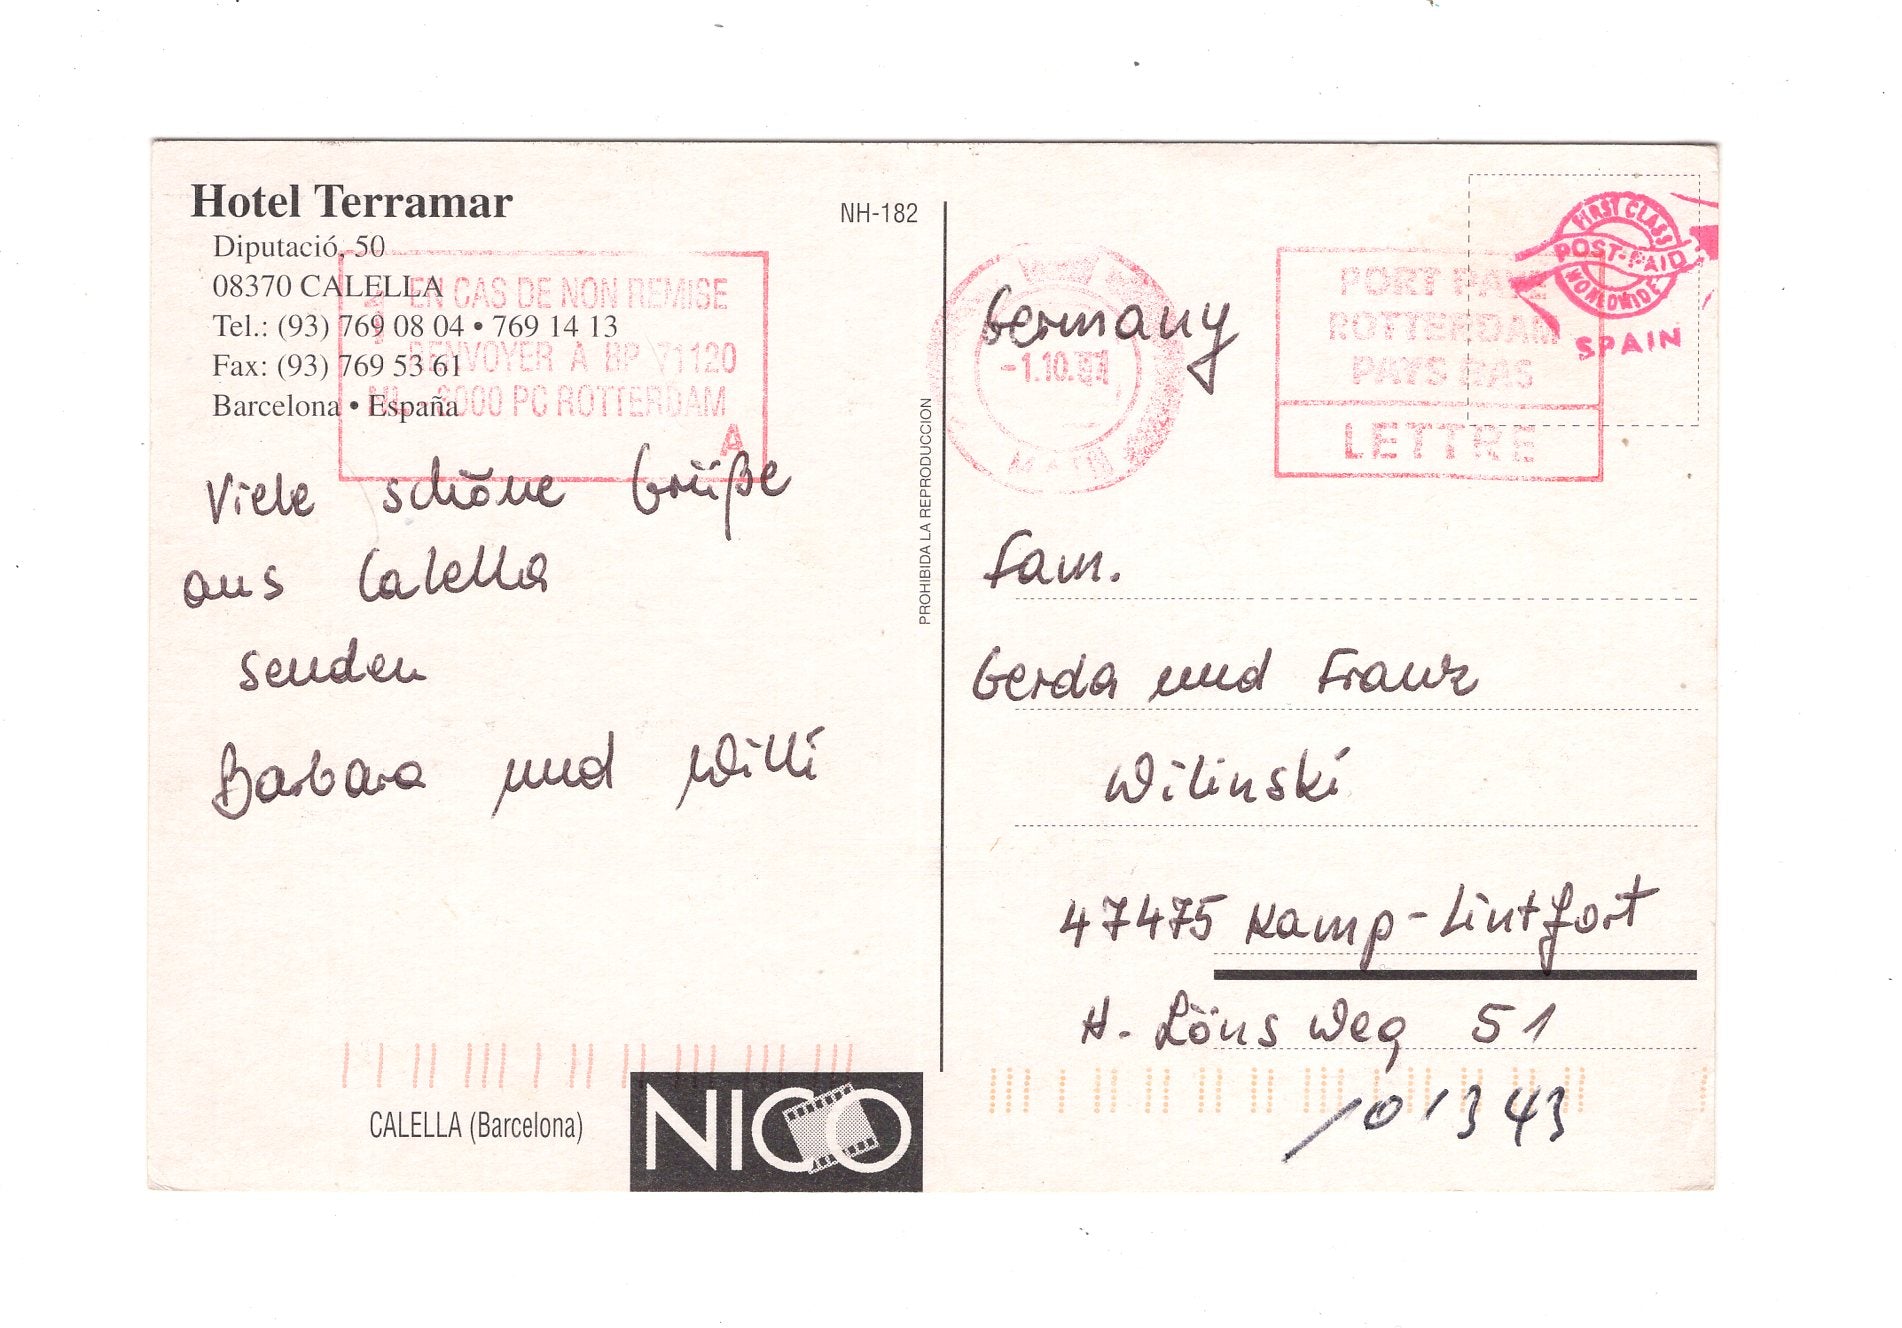 Hotel Terramar
Diputació, 50
08370 CALELLA
Tel.: (93) 769 08 04 • 769 14 13
Fax: (93) 769 53 61
Barcelona • España
NH-182
EN CAS DE NON REMISE
RENVOYER A BP 71120
NL - 3000 PC ROTTERDAM
A
Viele schöne Grüße
aus Calella
senden
Barbara und Willi
CALELLA (Barcelona)
NICO
PROHIBIDA LA REPRODUCCION
-1.10.
PORT PAYE
ROTTERDAM
PAYS BAS
LETTRE
FIRST CLASS
POST-PAID
WORLDWIDE
SPAIN
Germany
Fam.
Gerda und Franz
Wilinski
47475 Kamp-Lintfort
H. Löns Weg 51
101343